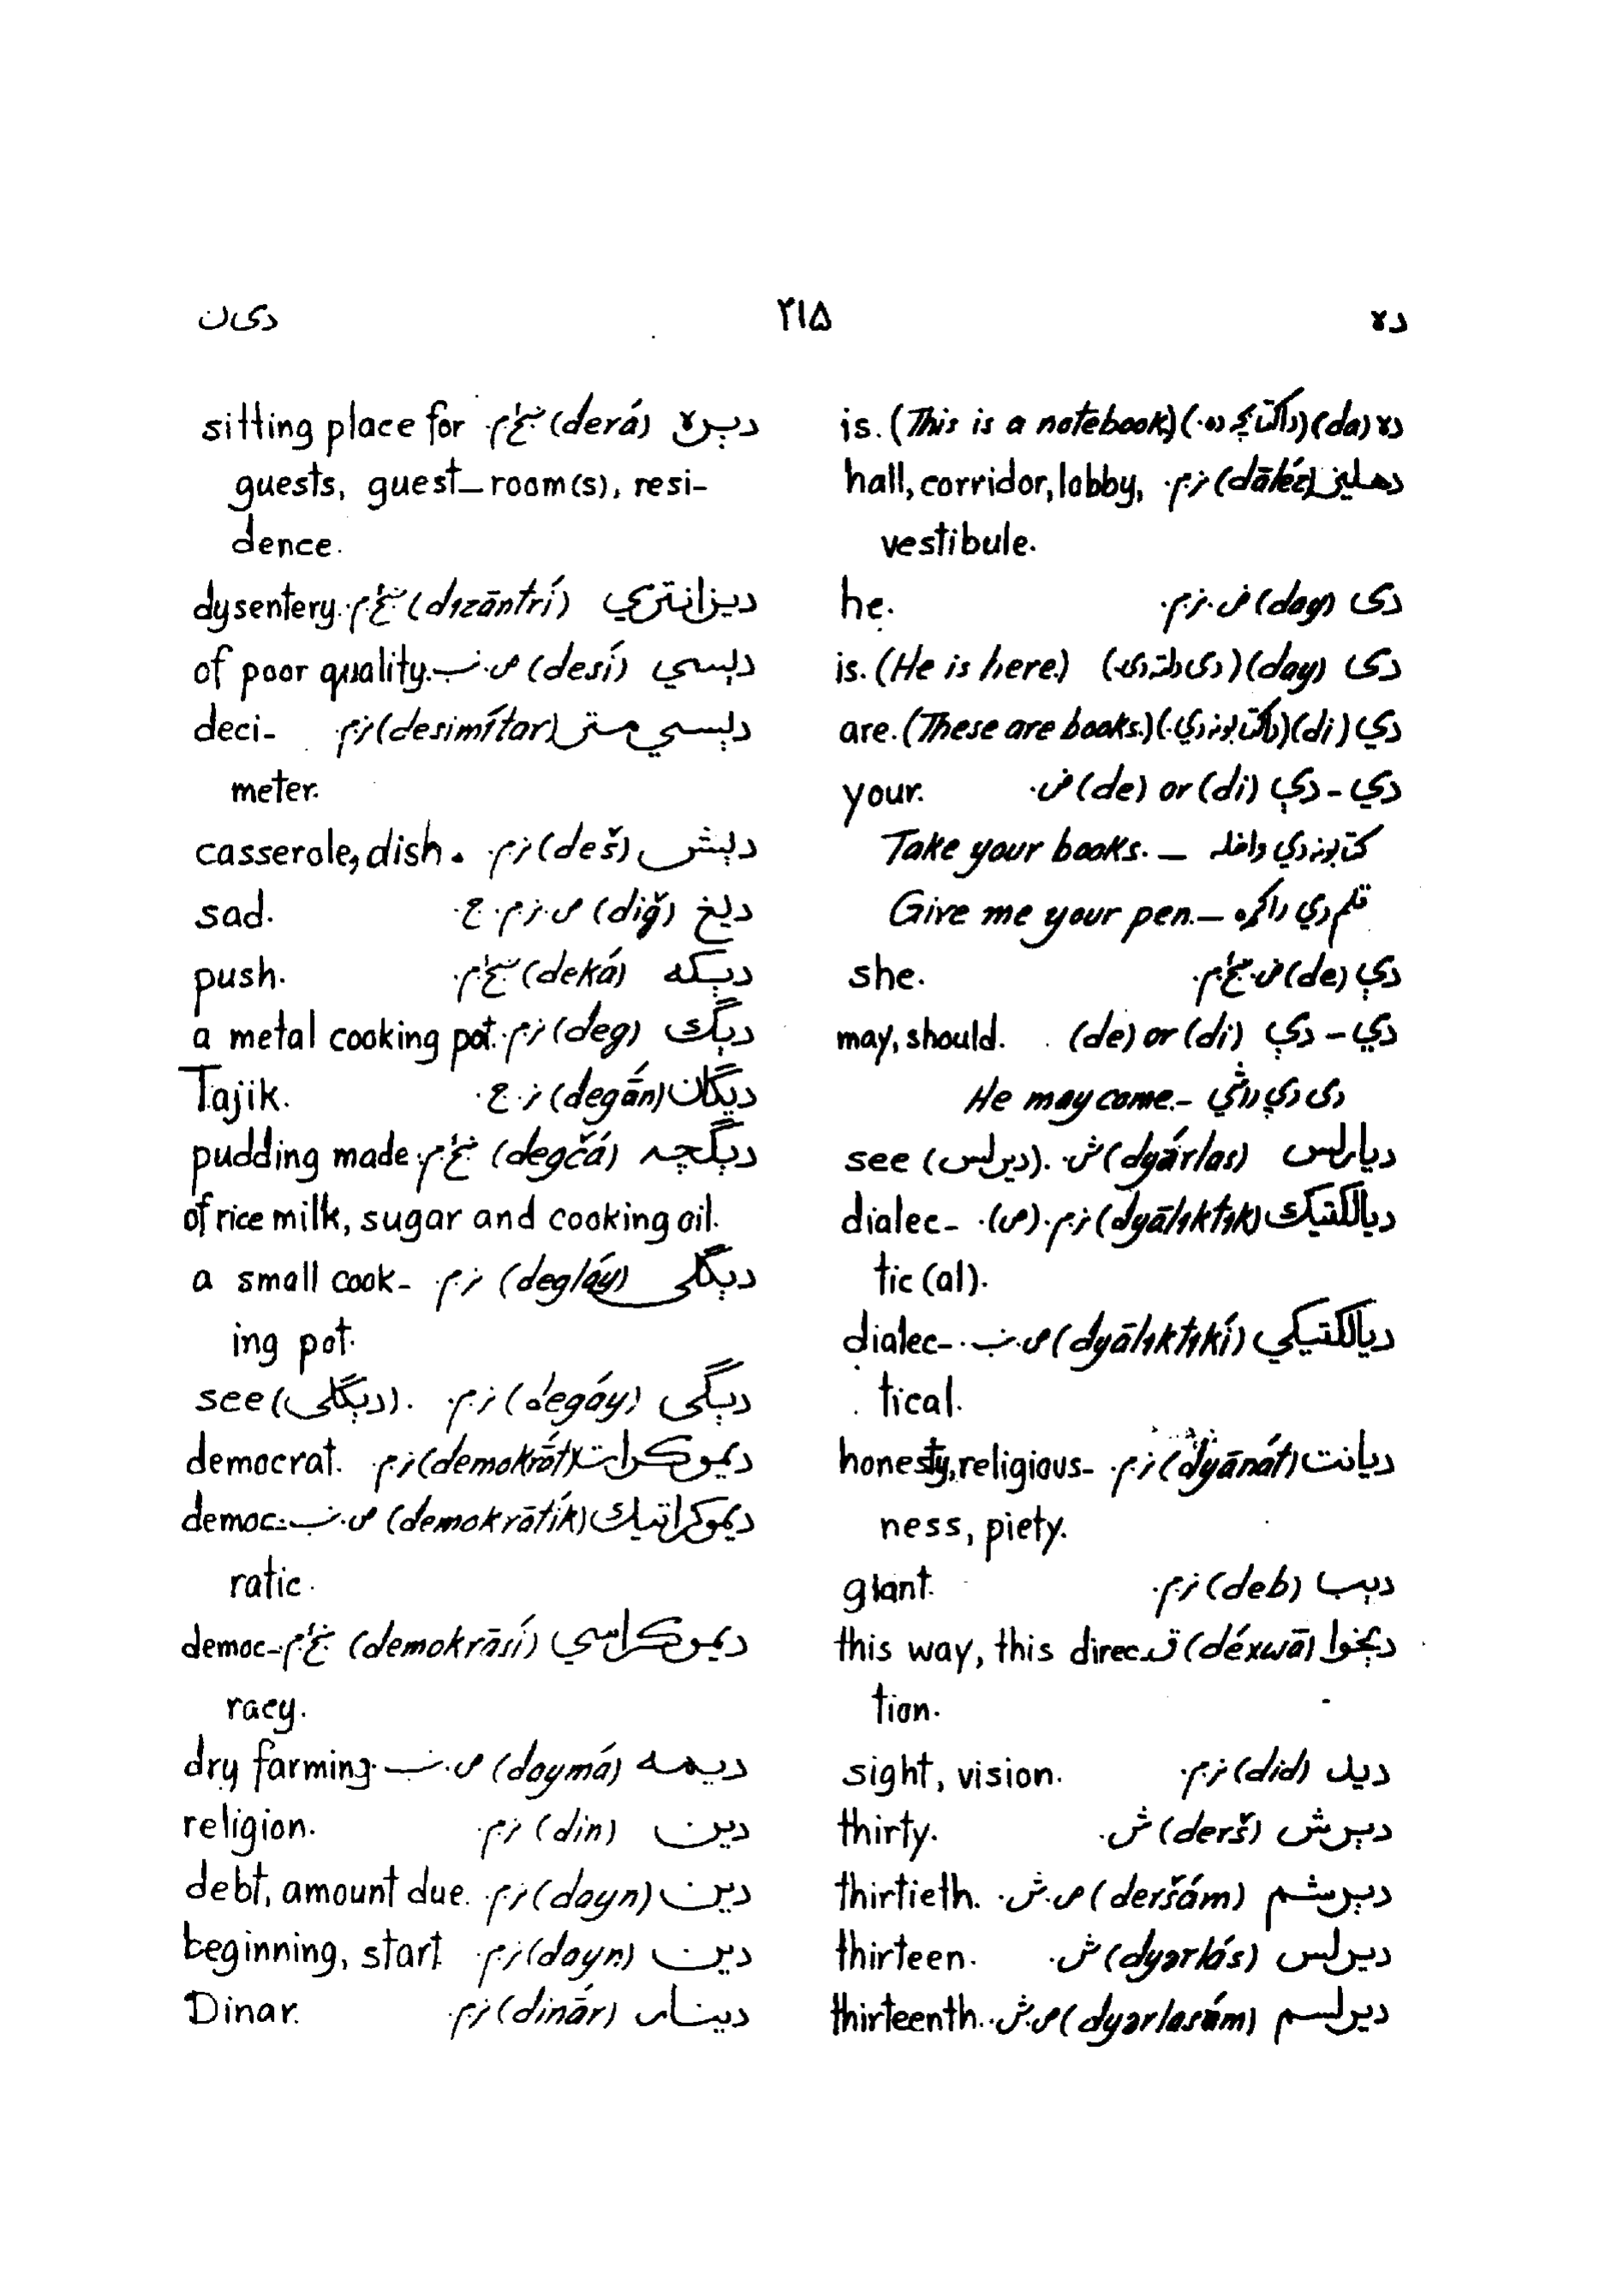 ده ۲۱۵ دی‌ن
ده (da) (دا کتابچه ده.) is. (This is a notebook.)
دهلیز (dāléz) ز.م. hall, corridor, lobby,
vestibule.
دی (day) ض.ز.م. he.
دی (day) (دی دلته دی.) is. (He is here.)
دي (di) (دا کتابونه دي.) are. (These are books.)
دي - دې (de) or (di) ض. your.
کتابونه دي واخله — Take your books.
قلم دي راکړه — Give me your pen.
دې (de) ض.ښځ.م. she.
دي - دې (de) or (di) may, should.
دی دي راشي - He may come.
دیارلس (dyárlas) ش. see (دیرلس).
دیالکتیک (dyālıktık) ز.م. (ص). dialec-
tic (al).
دیالکتیکي (dyālıktıkí) ص.ب. dialec-
tical.
دیانت (dyānát) ز.م. honesty, religious-
ness, piety.
دېب (deb) ز.م. giant.
دېخوا (déxwā) ق. this way, this direc-
tion.
دید (did) ز.م. sight, vision.
دېرش (derš) ش. thirty.
دېرشم (deršám) ص.ش. thirtieth.
دیرلس (dyərlás) ش. thirteen.
دیرلسم (dyərlasə́m) ص.ش. thirteenth.
دېره (derá) ښځ.م. sitting place for
guests, guest-room(s), resi-
dence.
دیزانتري (dızāntrí) ښځ.م. dysentery.
دېسي (desí) ص.ب. of poor quality.
دېسي متر (desimítar) ز.م. deci-
meter.
دېش (deš) ز.م. casserole, dish.
دیغ (diğ) ص.ز.م.ج. sad.
دېکه (deká) ښځ.م. push.
دېگ (deg) ز.م. a metal cooking pot.
دېگان (degā́n) ز.ج. Tajik.
دېگچه (degčá) ښځ.م. pudding made
of rice milk, sugar and cooking oil.
دېگلی (degláy) ز.م. a small cook-
ing pot.
دېگی (degáy) ز.م. see (دېگلی).
دیموکرات (demokrā́t) ز.م. democrat.
دیموکراتیک (demokrātík) ص.ب. democ-
ratic.
دیموکراسي (demokrāsí) ښځ.م. democ-
racy.
دیمه (daymá) ص.ب. dry farming.
دین (din) ز.م. religion.
دین (dayn) ز.م. debt, amount due.
دین (dayn) ز.م. beginning, start.
دینار (dinā́r) ز.م. Dinar.